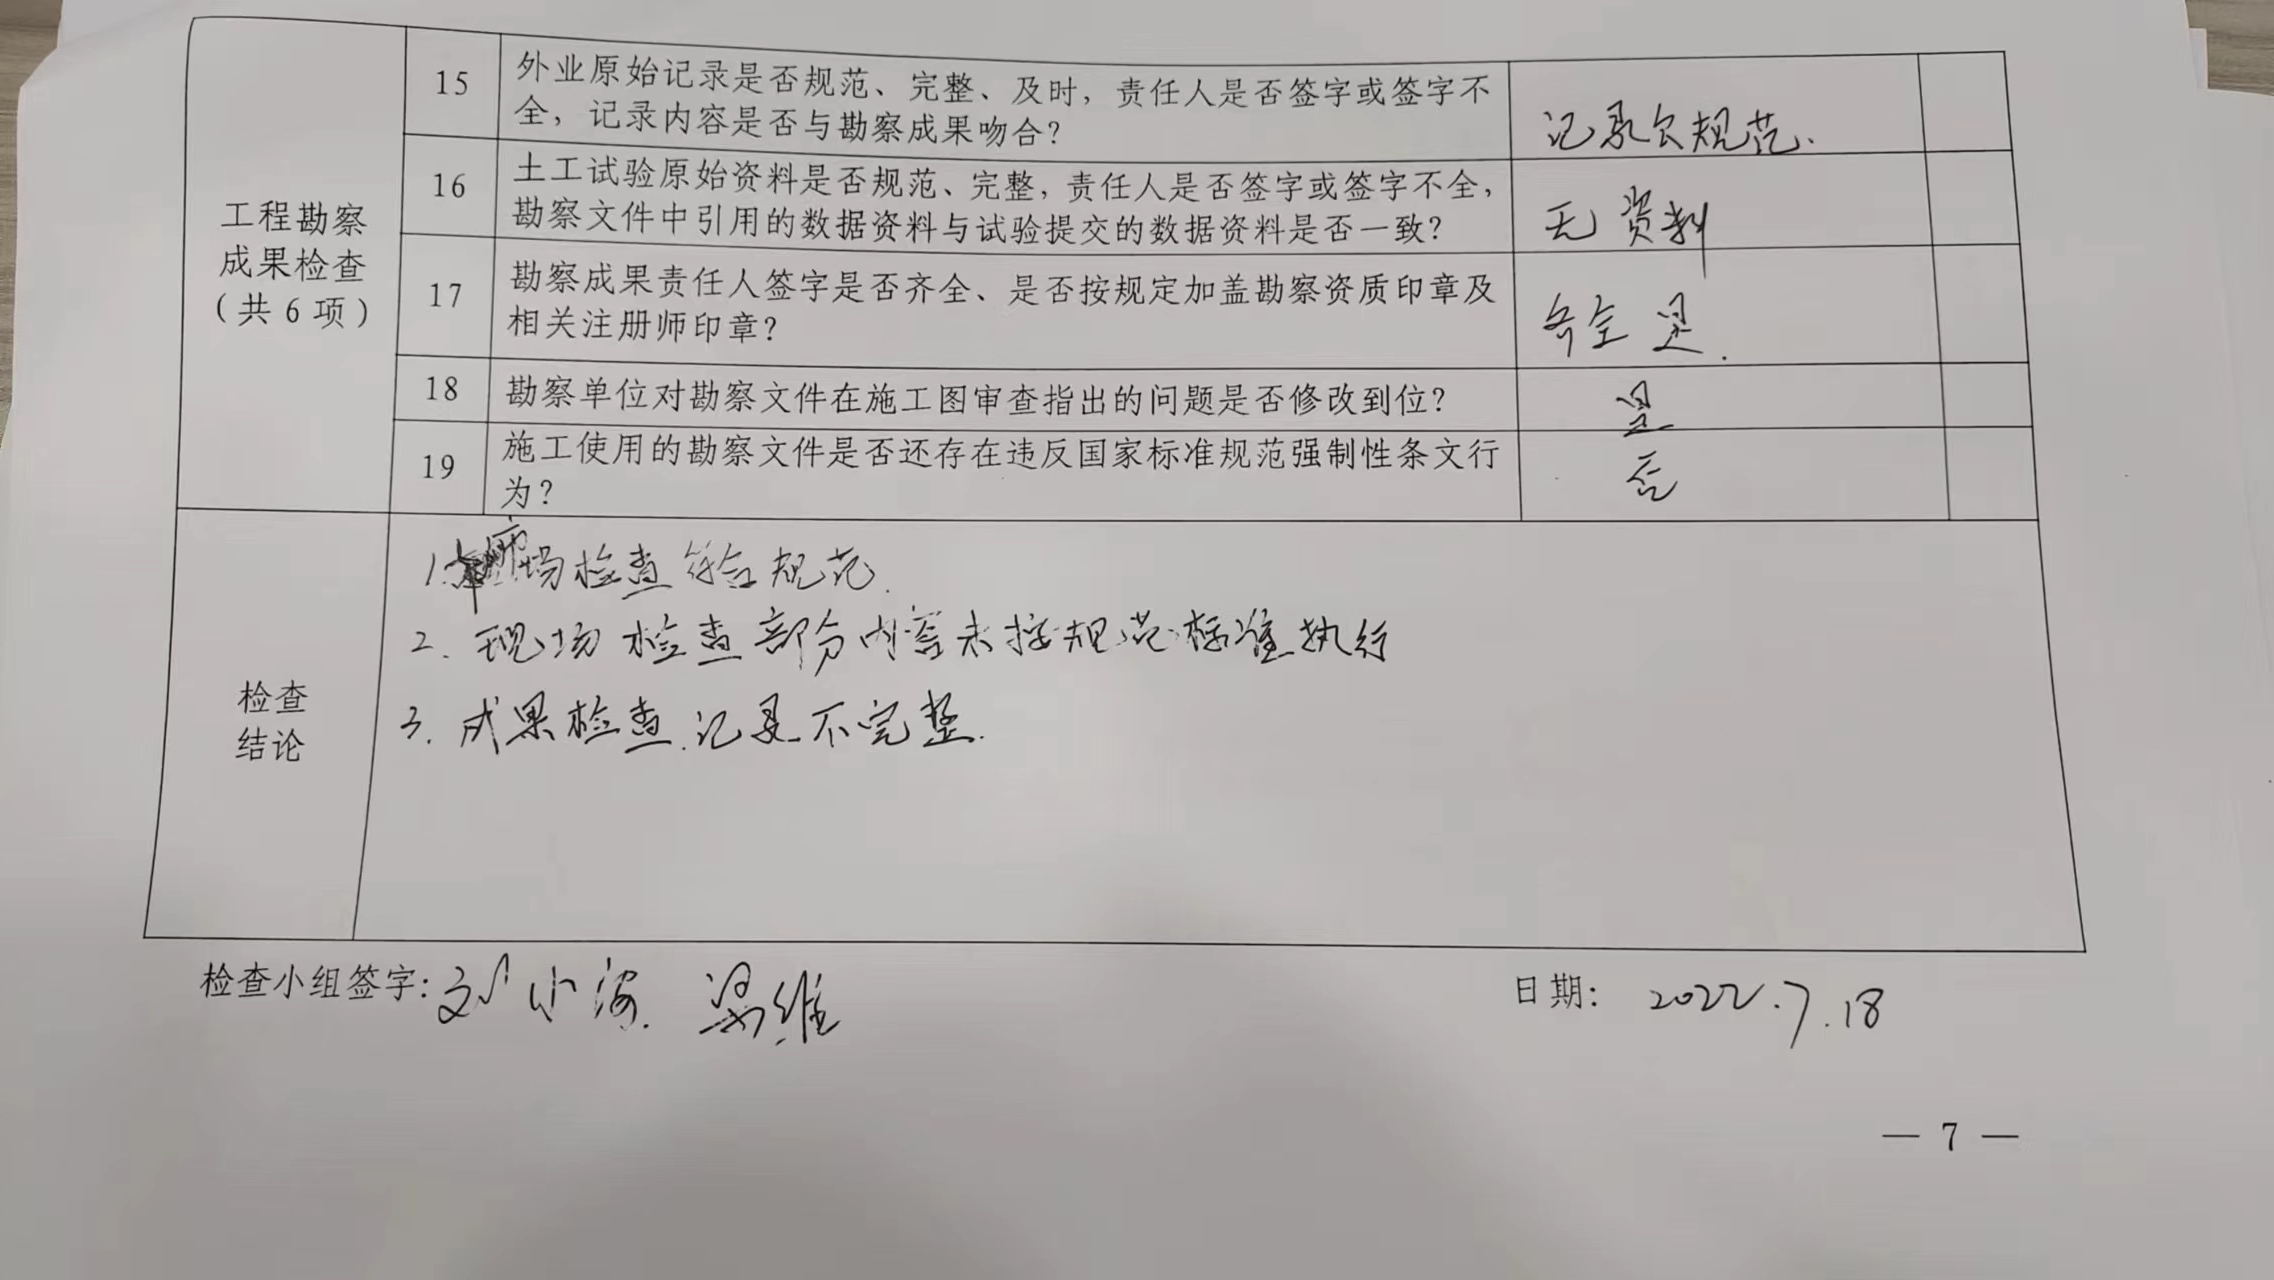 15
外业原始记录是否规范、完整、及时，责任人是否签字或签字不
全，记录内容是否与勘察成果吻合？
记录欠规范.
16
土工试验原始资料是否规范、完整，责任人是否签字或签字不全，
勘察文件中引用的数据资料与试验提交的数据资料是否一致？
无资料
工程勘察
成果检查
（共6项）
17
勘察成果责任人签字是否齐全、是否按规定加盖勘察资质印章及
相关注册师印章？
齐全 是.
18
勘察单位对勘察文件在施工图审查指出的问题是否修改到位？
是
19
施工使用的勘察文件是否还存在违反国家标准规范强制性条文行
为？
否
检查
结论
1. 市场检查符合规范.
2. 现场检查部分内容未按规范标准执行
3. 成果检查.记录不完整.
检查小组签字：刘小海. 梁维
日期： 2022.7.18
— 7 —